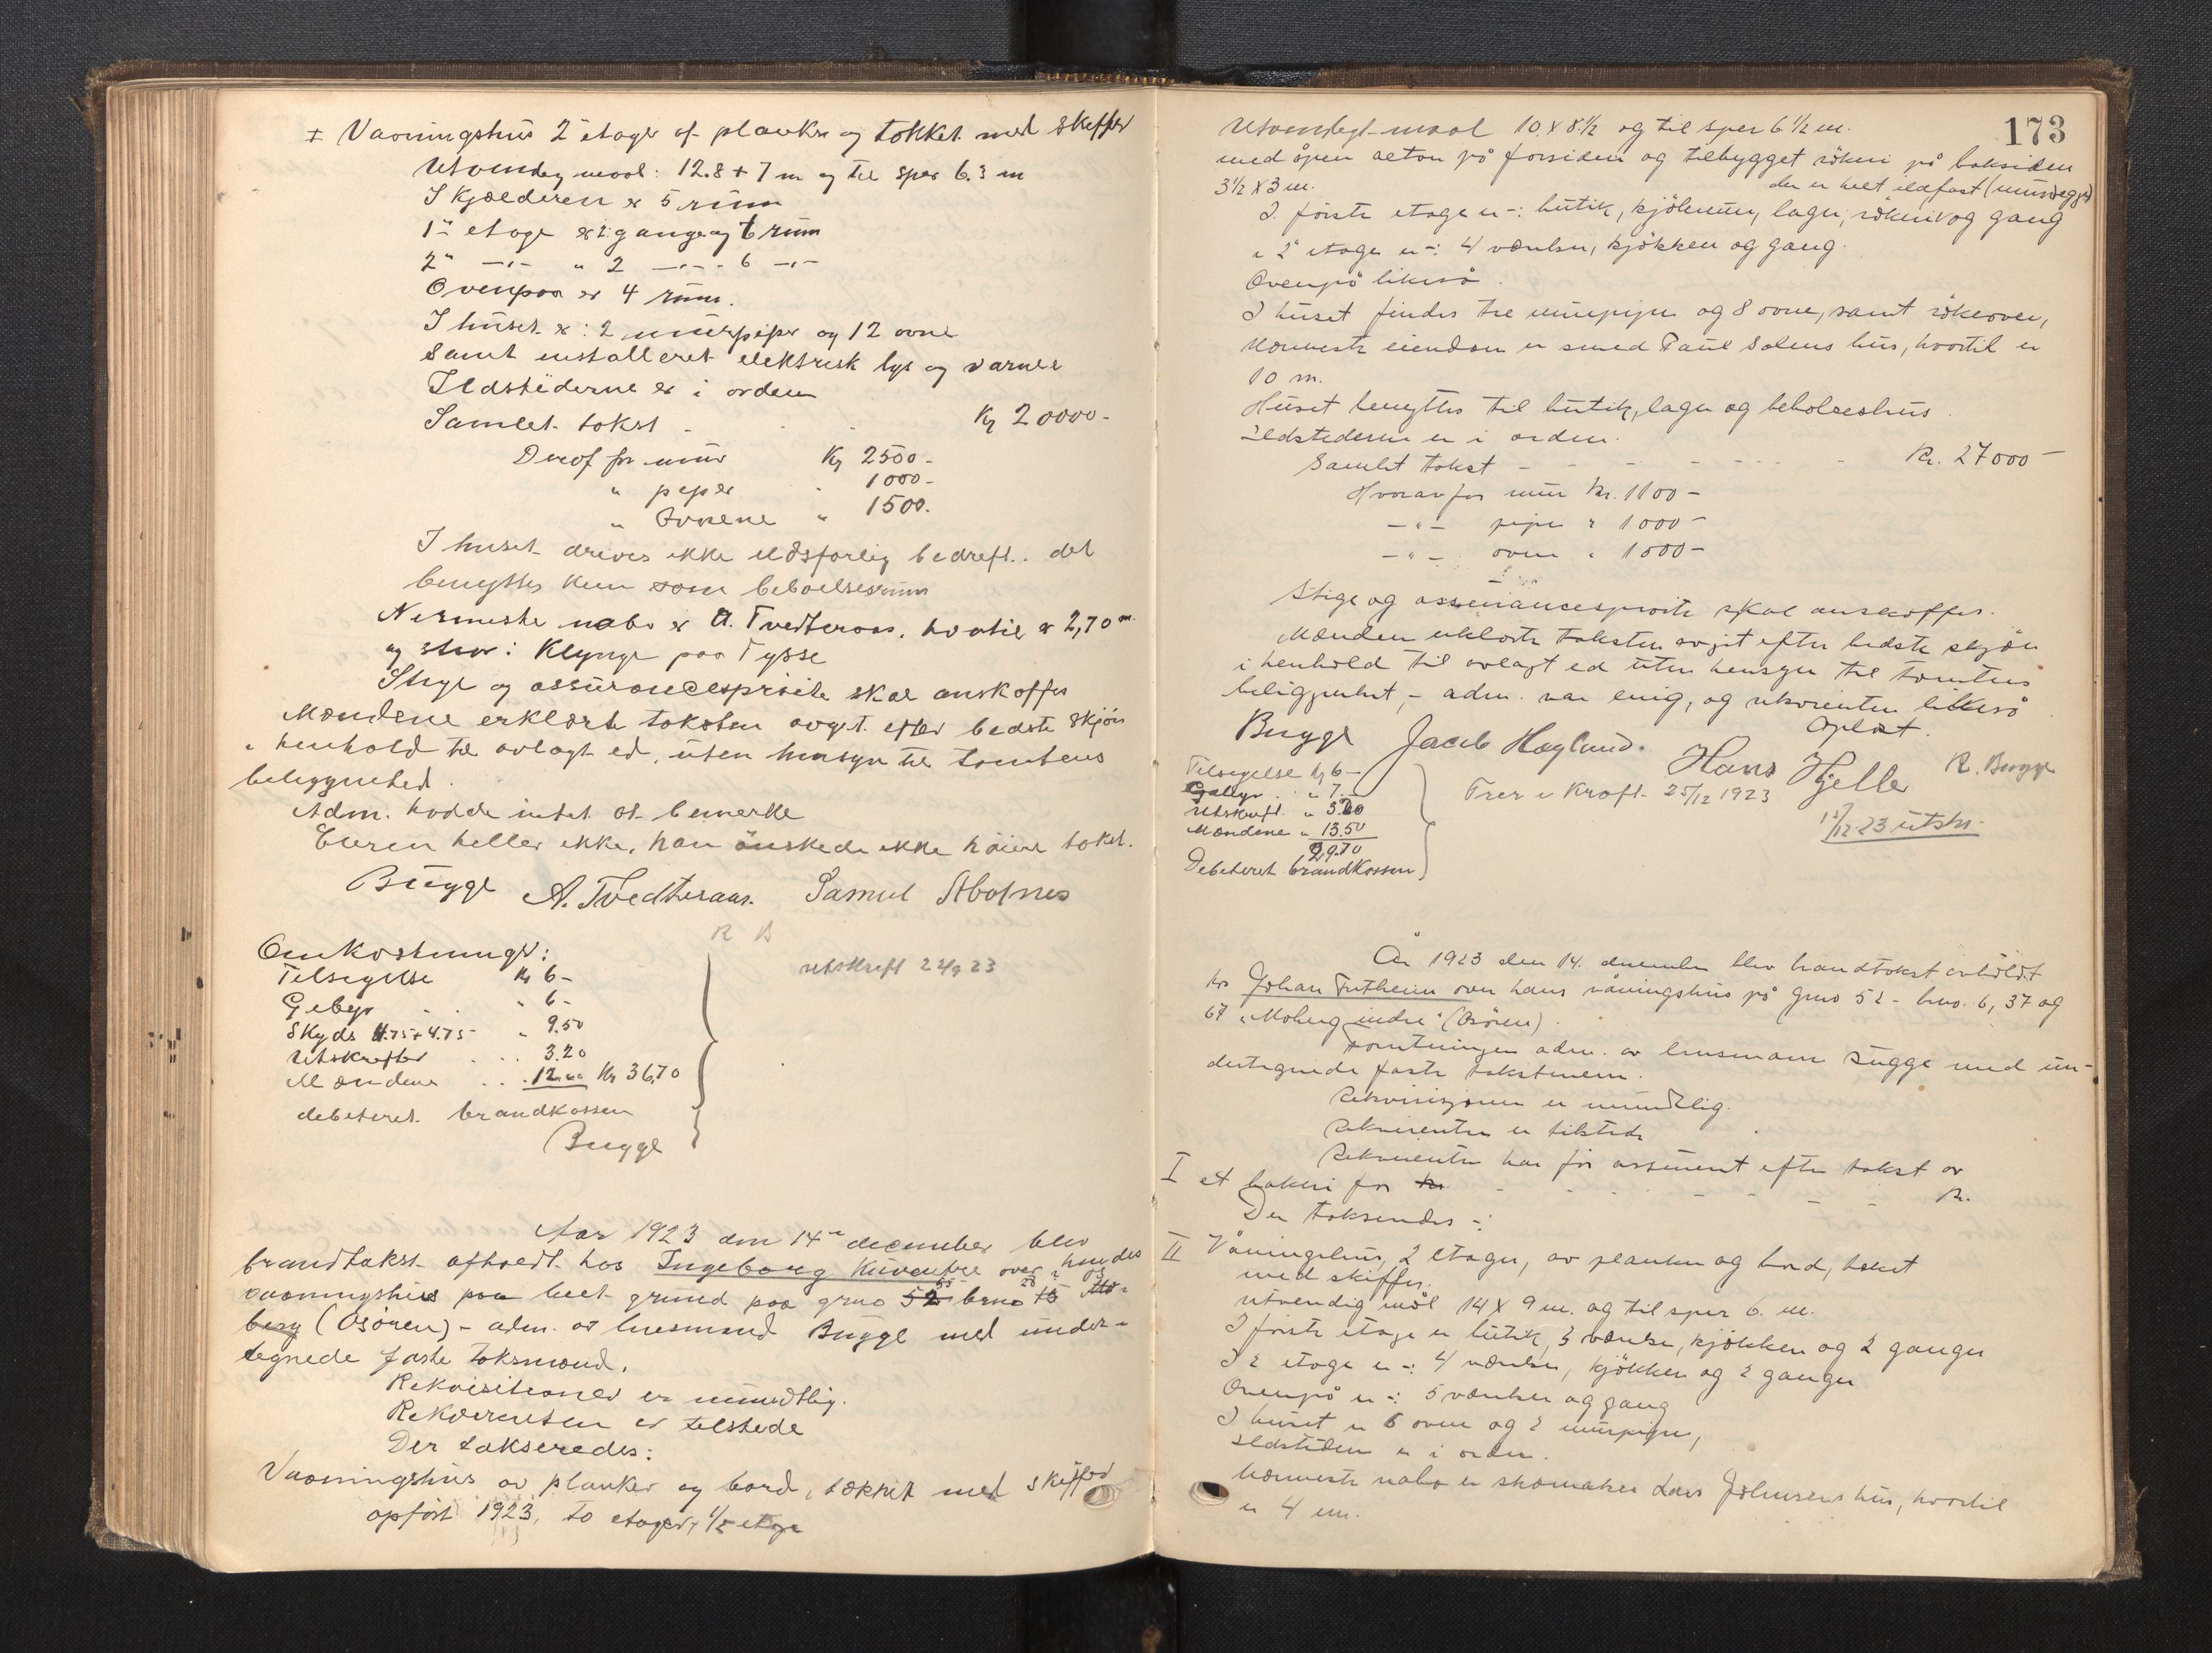 I Vaaningshus 2 etager af planker og tækket med skeffer
Utvendig maal: 12.8 + 7 m og til sper 6.3 m
I Kjælderen er 5 rum
1ste etage er 2 gange og 6 rum
2" -"- " 2 -"- 6 -"-
Ovenpaa er 4 rum.
I huset er: 2 murpiper og 12 ovne
Samt installeret elektrisk lys og varme
Ildstederne er i orden
Samlet takst - Kr 20000-
Deraf for mur Kr 2500-
" piper " 1000-
" Ovnene " 1500.
I huset drives ikke ildsfarlig bedreft.. det
benyttes kun som beboelsesrum
Nermeste nabo er A. Tvedteraas, hvortil er 2,70 m.
og staar i Klynge paa Tysse
Stige og assurancesprøite skal anskaffes
Mændene erklærte taksten avgit efter bedste skjøn
i henhold til avlagt ed, uten hensyn til tomtens
beliggenhed.
Adm. hadde intet at bemerke
Eieren heller ikke, han ønskede ikke høiere takst.
Bugge A. Tvedteraas. Samuel Abotnes
R B
Omkostninger:
Tilsigelse Kr 6-
Gebyr " 6-
Skyds 4.75 + 4.75 " 9.50
Utskrefter 3.20
Mændene 12.00 Kr 36,70
debeteret brandkassen
Bugge
utskreft 22/9 23
Aar 1923 den 14de december blev
brandtakst afholdt hos Ingeborg Kuventre over hendes
vaaningshus paa leet grund paa grno 52 55 brno 15 28 Mo-
berg (Osøren) - adm. av lensmand Bugge med under-
tegnede faste taksmænd.
Rekvisitionen er mundtlig.
Rekverenten er telstede
Der takseredes:
Vaaningshus av planker og bord, tækket med skeffer
opført 1923, to etager, 1/2 etage
173
Utvendigt maal 10 x 8 1/2 og til sper 6 1/2 m.
med åpen altan på forsiden og tilbygget rökeri på baksiden
3 1/2 x 3 m. der er helt ildfast (murvegger)
I förste etage er -: butik, kjölerum, lager, rökeri og gang
i 2" etage er -: 4 værelser, kjökken og gang.
Ovenpå likeså.
I huset findes tre murpiper og 8 ovne, samt rökeovn,
Nærmeste eiendom er smed Paul Solens hus, hvortil er
10 m.
Huset benyttes til butik, lager og beboelseshus.
Ildstederne er i orden.
Samlet takst - Kr. 27000-
Hvorav for mur Kr. 1100-
-"- piper " 1000-
-"- ovne " 1000-
Stige og assurancespröite skal anskaffes.
Mænden erklærte taksten avgit efter bedste skjön
i henhold til avlagt ed uten hensyn til tomtens
beliggenhet, - adm. var enig, og rekvirenten likeså.
Oplæst.
Bugge Jacob Haglund. Hans Hjelle R. Bugge
Tilsigelse Kr 6-
Gebyr " 7.-
Utskreft " 3.20
Mændene " 13.50
29.70
Debeteret brandkassen
Trer i Kraft 25/12 1923
15/12 23 utskr.
År 1923 den 14. december blev brandtakst avholdt
hos Johan Tutheim over hans våningshus på gno 52 - bno. 6, 37 og
67 "Moberg indre" (Osören).
Forretningen adm. av lensmann Bugge med un-
dertegnede faste takstmenn.
Rekvisisjonen er mundtlig.
Rekvirenten er tilstede
Rekvirenten har för assurert efter takst av
I et bakeri for kr. - Kr.
Der takserdes -:
II Våningshus, 2 etager, av planker og bord, tækket
med skiffer.
utvendig mål 14 x 9 m. og til sper 6. m.
I förste etage er butik, 3 værelser, kjökken og 2 ganger
I 2 etage er -: 4 værelser, kjökken og 2 ganger
Ovenpå er -: 5 værelser og gang
I huset er 6 ovne og 2 murpiper,
Ildsteden er i orden.
Nærmeste nabo er skomaker Lars Johnsens hus, hvortil
er 4 m.